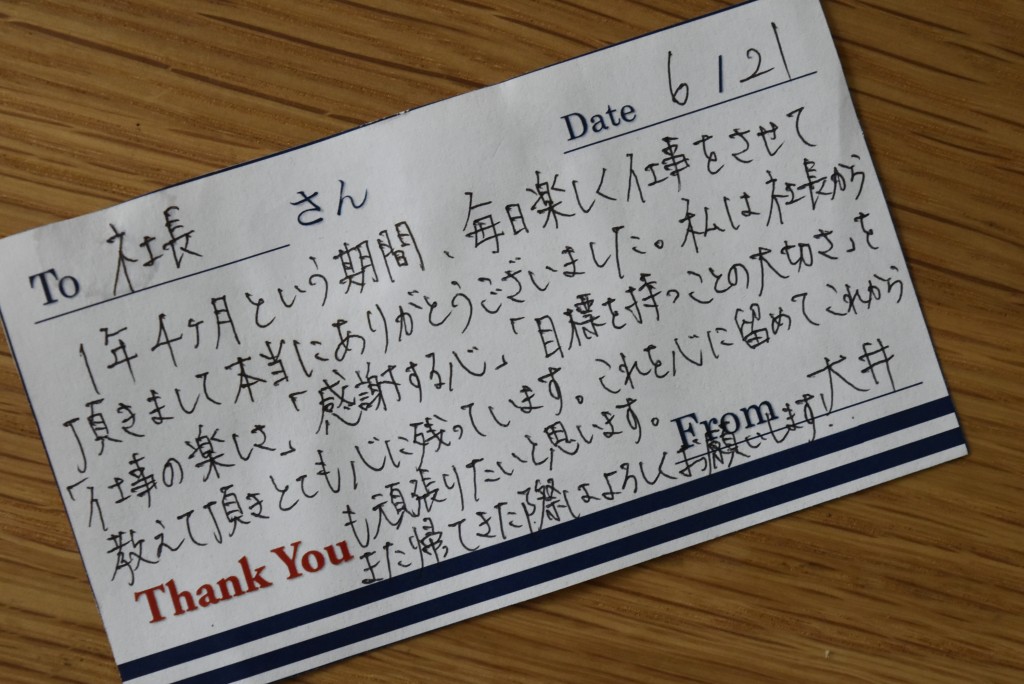 Date 6/21
To 社長 さん
1年4ヶ月という期間、毎日楽しく仕事をさせて
頂きまして本当にありがとうございました。私は社長から
「仕事の楽しさ」「感謝する心」「目標を持つことの大切さ」を
教えて頂きとても心に残っています。これを心に留めてこれから
も頑張りたいと思います。
From 大井
また帰ってきた際はよろしくお願いします!
Thank You